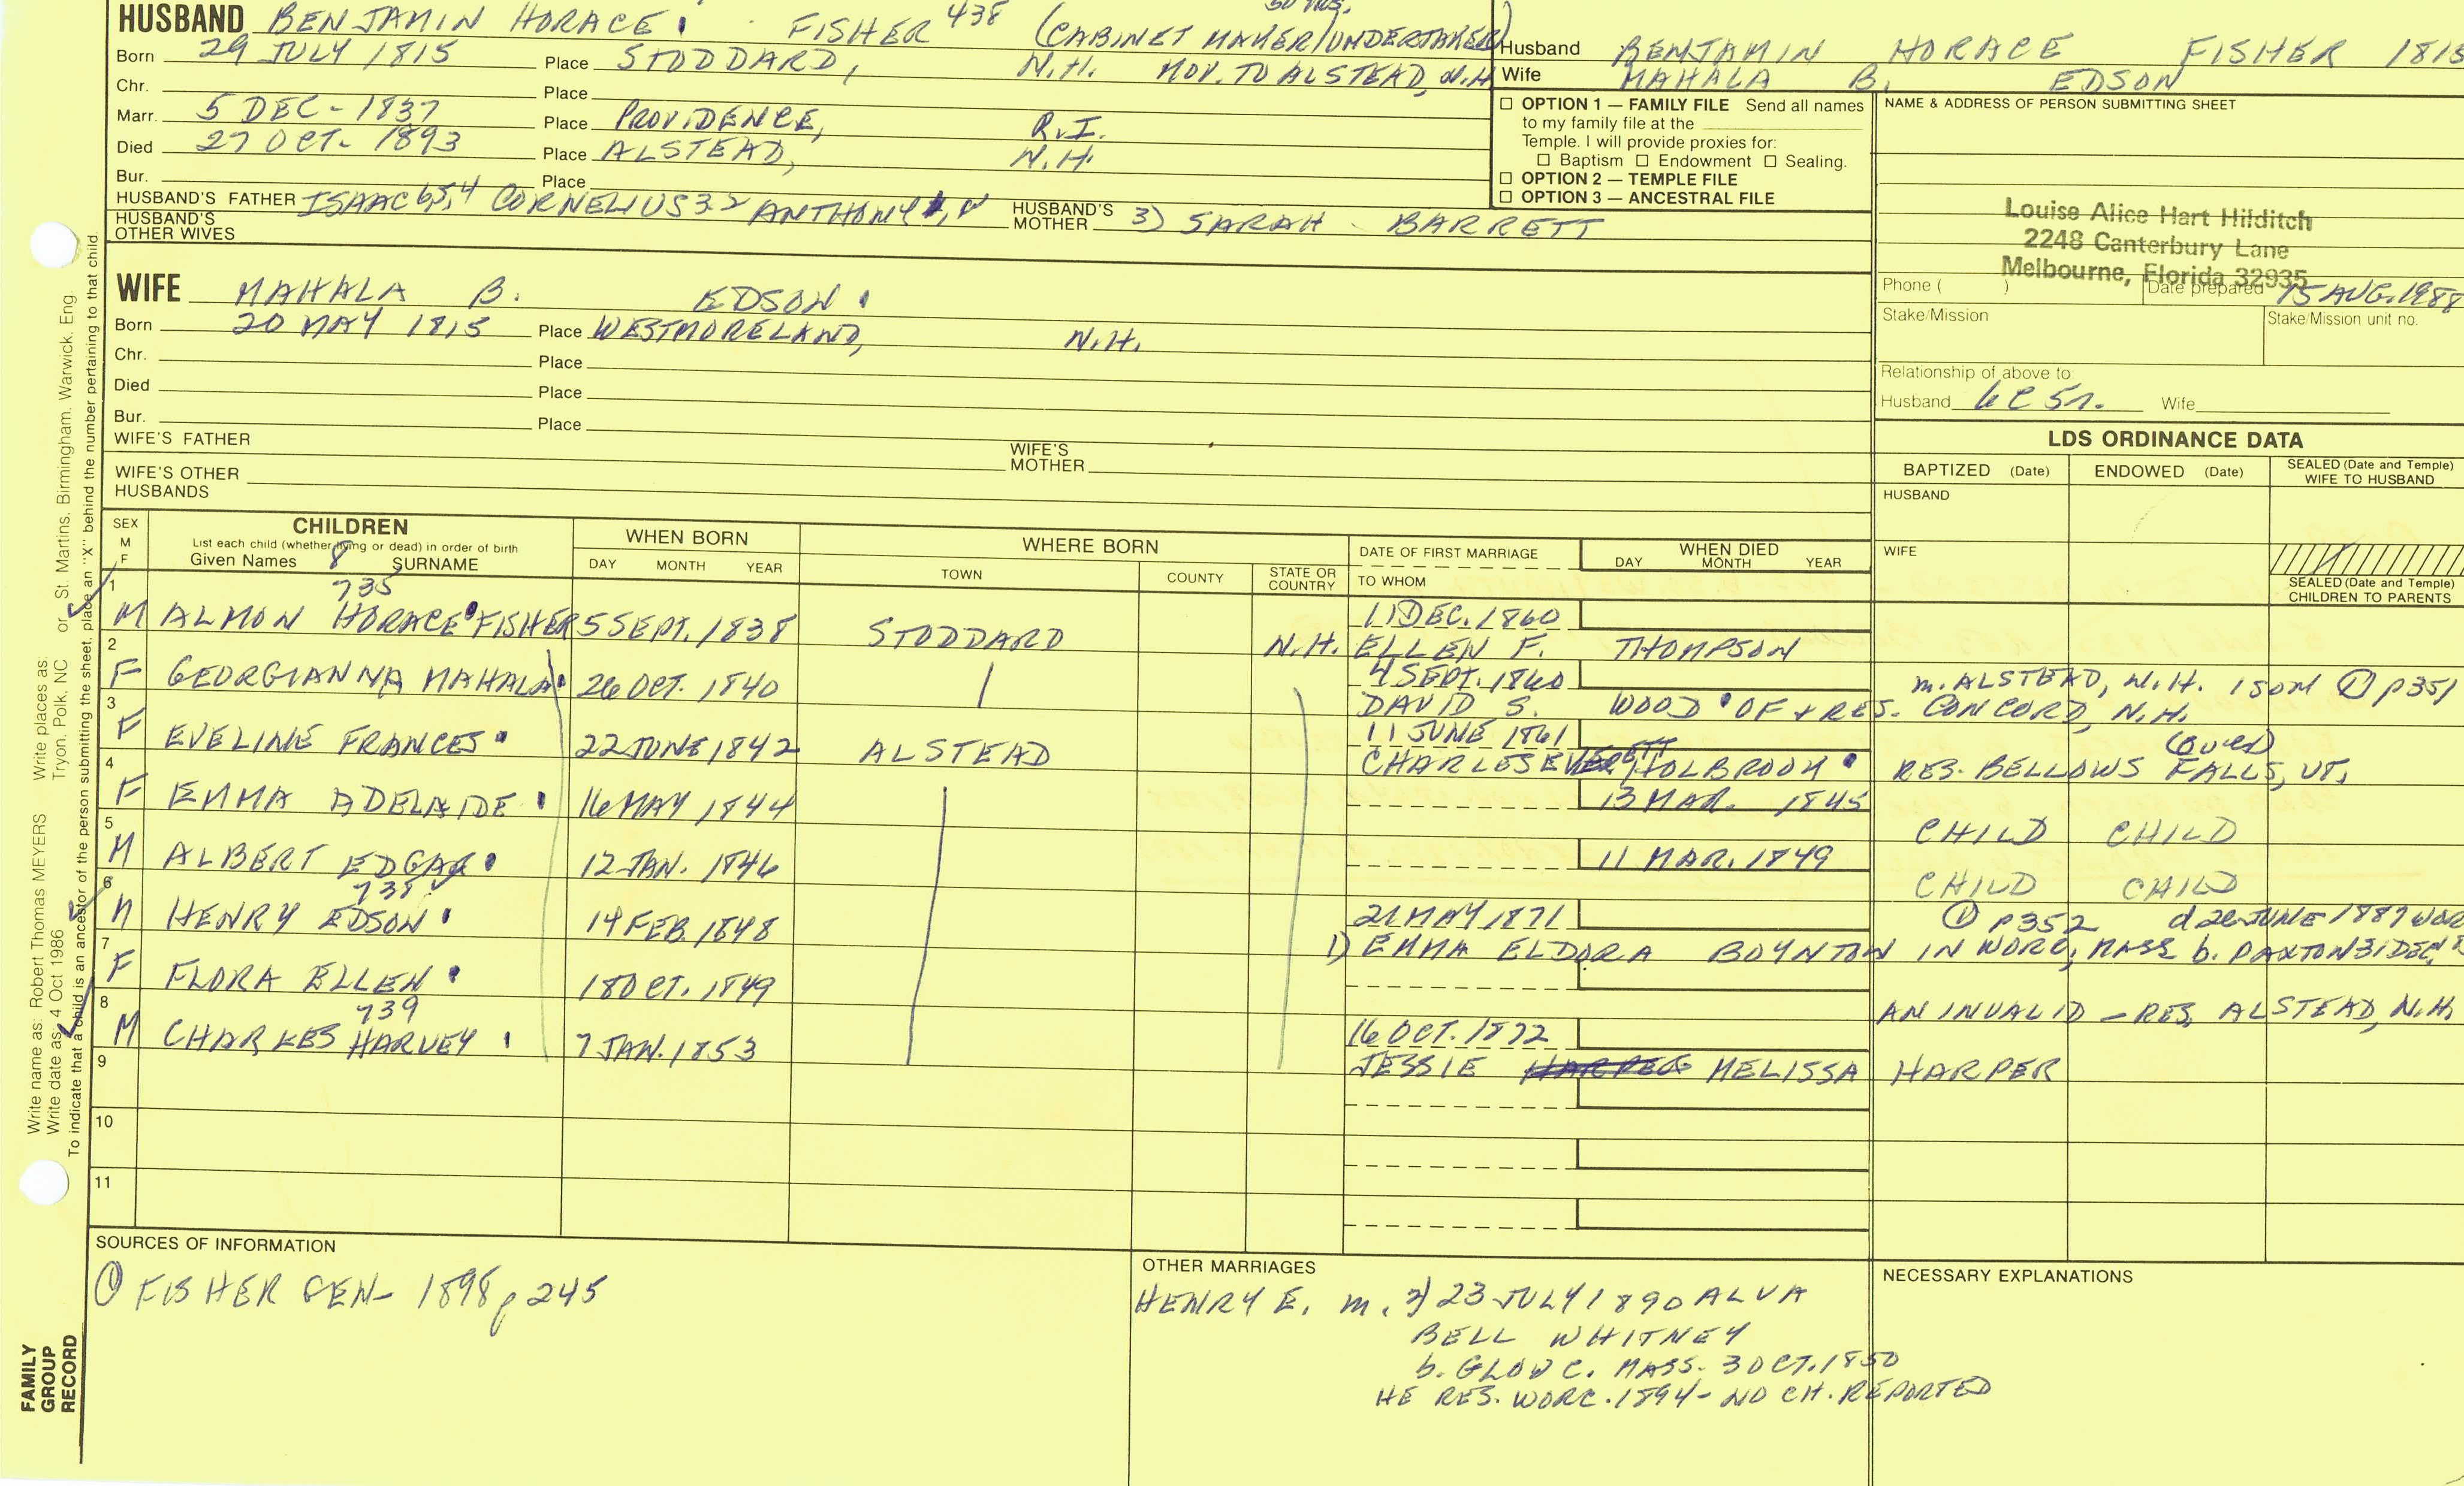 HUSBAND BENJAMIN HORACE FISHER 438 (CABINET MAKER/UNDERTAKER)
Born 29 JULY 1815 Place STODDARD, N.H. MOV. TO ALSTEAD, N.H.
Chr. Place
Marr. 5 DEC - 1837 Place PROVIDENCE, R.I.
Died 27 OCT- 1893 Place ALSTEAD, N.H.
Bur. Place
HUSBAND'S FATHER ISAAC 6,5,4 CORNELIUS 3,2 ANTHONY HUSBAND'S MOTHER 3) SARAH BARRETT
HUSBAND'S OTHER WIVES
WIFE MAHALA B. EDSON
Born 20 MAY 1815 Place WESTMORELAND, N.H.
Chr. Place
Died Place
Bur. Place
WIFE'S FATHER WIFE'S MOTHER
WIFE'S OTHER HUSBANDS
Husband BENJAMIN HORACE FISHER 1815
Wife MAHALA B. EDSON
☐ OPTION 1 — FAMILY FILE Send all names
to my family file at the
Temple. I will provide proxies for:
☐ Baptism ☐ Endowment ☐ Sealing.
☐ OPTION 2 — TEMPLE FILE
☐ OPTION 3 — ANCESTRAL FILE
NAME & ADDRESS OF PERSON SUBMITTING SHEET
Louise Alice Hart Hilditch
2248 Canterbury Lane
Melbourne, Florida 32935
Phone ( ) Date prepared 15 AUG. 1988
Stake/Mission Stake/Mission unit no.
Relationship of above to:
Husband 6C 5r. Wife
LDS ORDINANCE DATA
BAPTIZED (Date) ENDOWED (Date) SEALED (Date and Temple) WIFE TO HUSBAND
HUSBAND
WIFE
SEALED (Date and Temple) CHILDREN TO PARENTS
SEX M F
CHILDREN
List each child (whether living or dead) in order of birth
Given Names 8 SURNAME
WHEN BORN
DAY MONTH YEAR
WHERE BORN
TOWN COUNTY STATE OR COUNTRY
DATE OF FIRST MARRIAGE
TO WHOM
WHEN DIED
DAY MONTH YEAR
1 735
M ALMON HORACE FISHER 5 SEPT. 1838 STODDARD N.H. 11 DEC. 1860
ELLEN F. THOMPSON
2
F GEORGIANNA MAHALA 26 OCT. 1840 4 SEPT. 1860 m. ALSTEAD, N.H. 1 SON ① p351
DAVID S. WOOD OF + RES. CONCORD, N.H.
3
F EVELINE FRANCES 22 JUNE 1842 ALSTEAD 11 JUNE 1861
CHARLES EVERETT HOLBROOK RES. BELLOWS FALLS, VT.
4
F EMMA ADELAIDE 16 MAY 1844 13 MAR. 1845
CHILD CHILD
5
M ALBERT EDGAR 12 JAN. 1846 11 MAR. 1849
CHILD CHILD
6 738
M HENRY EDSON 14 FEB. 1848 21 MAY 1871 ① p352 d 22 JUNE 1887 WOR
1) EMMA ELDORA BOYNTON IN WORC, MASS b. PAXTON 31 DEC.
7
F FLORA ELLEN 18 OCT. 1849
AN INVALID - RES. ALSTEAD, N.H.
8 739
M CHARKES HARVEY 7 JAN. 1853 16 OCT. 1872
JESSIE MELISSA HARPER
9
10
11
SOURCES OF INFORMATION
① FISHER GEN- 1898 p 245
OTHER MARRIAGES
HENRY E. m. 2) 23 JULY 1890 ALVA
BELL WHITNEY
b. GLOUC. MASS. 3 OCT. 1850
HE RES. WORC. 1894 - NO CH. REPORTED
NECESSARY EXPLANATIONS
Write name as: Robert Thomas MEYERS Write places as: Tryon, Polk, NC or St. Martins, Birmingham, Warwick, Eng.
Write date as: 4 Oct 1986
To indicate that a child is an ancestor of the person submitting the sheet, place an "X" behind the number pertaining to that child.
FAMILY
GROUP
RECORD